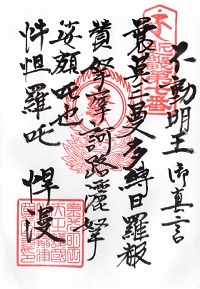 不動明王 御真言
曩莫三曼多縛日羅赧
賛拏摩訶路灑拏
娑頗吒也
吽怛羅吒 悍漫